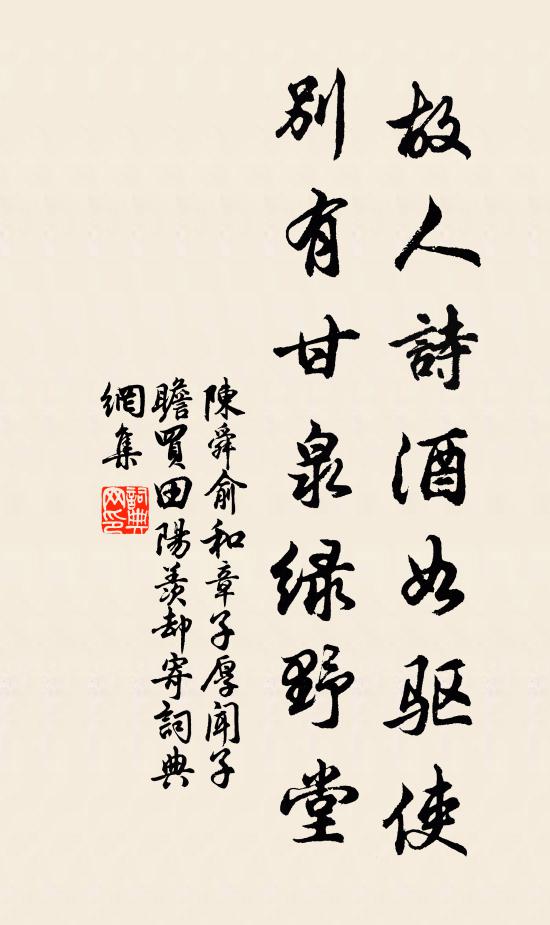 故人詩酒如驱使
别有甘泉绿野堂
陳舜俞和章子厚聞子
瞻買田陽羨却寄詞典
網集
詞典网印